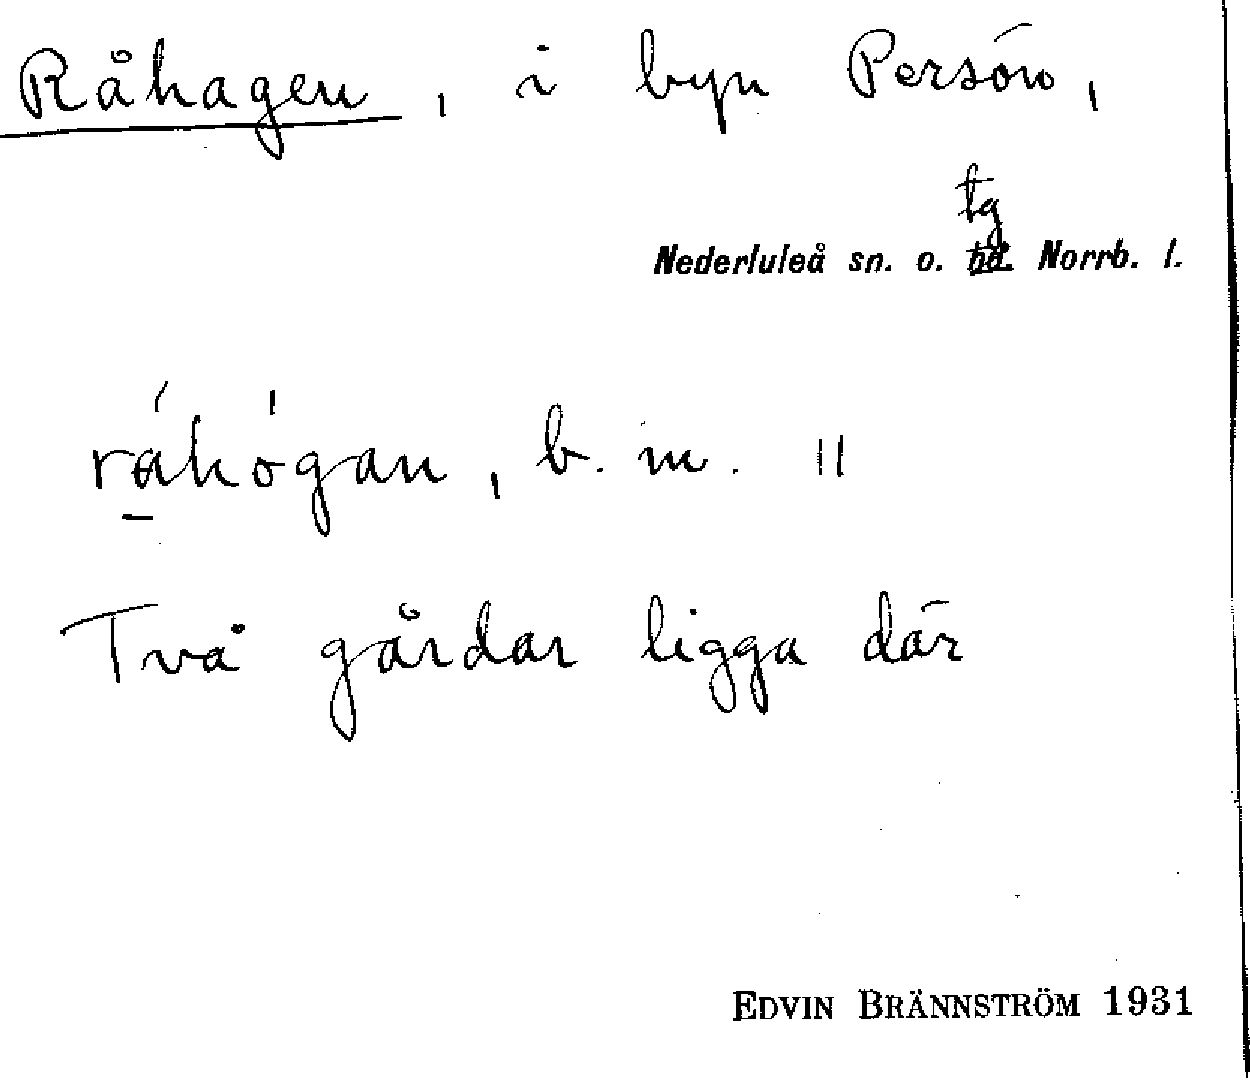 Råhagen, i byn Persön,
tg
Nederluleå sn. o. hd. Norrb. l.
råhògan, b. m. ||
Två gårdar ligga där
EDVIN BRÄNNSTRÖM 1931